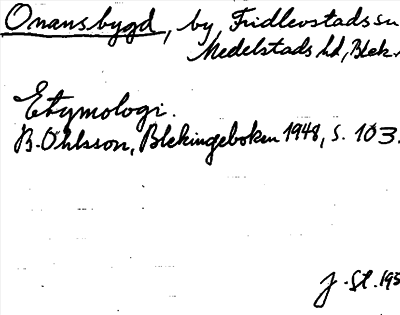 Onansbygd, by, Fridlevstads sn
Medelstads hd, Blek.
Etymologi.
B. Ohlsson, Blekingeboken 1948, s. 103.
J. St. 195